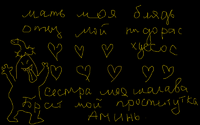 мать моя блядь
отец мой пидорас
хуесос
сестра моя шалава
брат мой проститутка
аминь